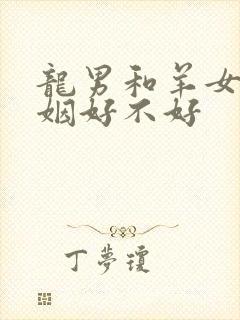 龍男和羊女
姻好不好
丁夢瓊